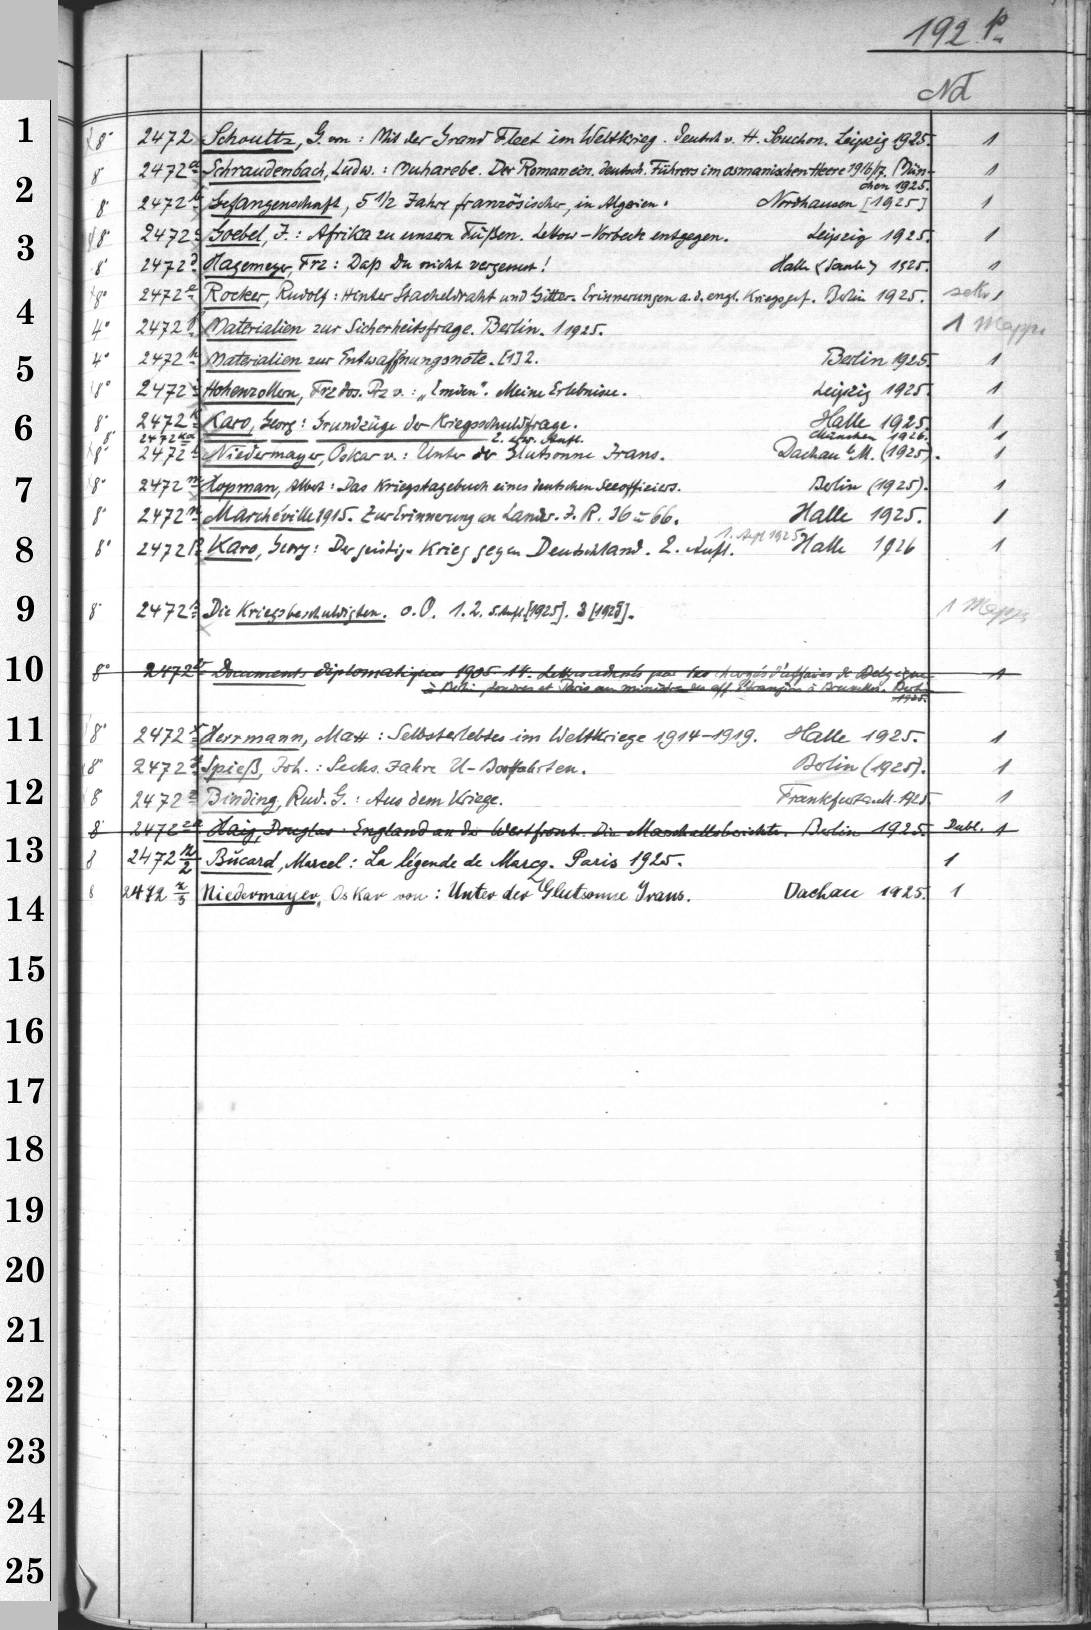 192 p
Nd
1
8° 2472 Schoultz, G. von: Mit der Grand Fleet im Weltkrieg. Deutsch v. H. Souchon. Leipzig 1925. 1
8° 2472 a Schraudenbach, Ludw.: Muharebe. Der Roman ein. deutsch. Führers im osmanischen Heere 1916/17. (Mün- 1
chen 1925.
2
8° 2472 b Gefangenschaft, 5 1/2 Jahre französischer, in Algerien. Nordhausen [1925] 1
3
8° 2472 c Goebel, J.: Afrika zu unsern Füßen. Lettow-Vorbeck entgegen. Leipzig 1925. 1
8° 2472 d Hagemeyer, Frz: Daß Du nicht vergennst! Halle <Saale> 1925. 1
8° 2472 e Rocker, Rudolf: Hinter Stacheldraht und Gitter. Erinnerungen a. d. engl. Kriegsgef. Berlin 1925. sekr 1
4
4° 2472 f Materialien zur Sicherheitsfrage. Berlin. 1 1925. 1 Mappe
5
4° 2472 h Materialien zur Entwaffnungsnote. [1] 2. Berlin 1925. 1
8° 2472 i Hohenzollern, Frz Jos. Prz v.: „Emden". Meine Erlebnisse. Leipzig 1925. 1
6
8° 2472 k Karo, Georg: Grundzüge der Kriegsschuldfrage. Halle 1925. 1
8° 2472 ka 2. Aufl. München 1926. 1
8° 2472 l Niedermayer, Oskar v.: Unter der Glutsonne Irans. Dachau b. M. (1925). 1
7
8° 2472 m Hopman, Albert: Das Kriegstagebuch eines deutschen Seeoffiziers. Berlin (1925). 1
8° 2472 n Marchéville 1915. Zur Erinnerung an Landw. J. R. 36 u 66. Halle 1925. 1
8
8° 2472 p Karo, Georg: Der geistige Krieg gegen Deutschland. 2. Aufl. 1. Aufl 1925 Halle 1926 1
9
8° 2472 Die Kriegsbeschuldigten. o. O. 1. 2. 5. Aufl [1925]. 3 [1925]. 1 Mappe
10
8° 2472 Documents diplomatiques 1905-14. Lettres adressés par les chargés d'affaires de Belgique 1
à Berlin Londres et Paris au ministre des aff. étrangères à Bruxelles. Berlin
1925.
11
8° 2472 x Herrmann, Matt: Selbsterlebtes im Weltkriege 1914-1919. Halle 1925. 1
8° 2472 y Spieß, Joh.: Sechs Jahre U-Bootfahrten. Berlin (1925). 1
12
8 2472 z Binding, Rud. G.: Aus dem Kriege. Frankfurt a. M. 1925 1
8° 2472 za Haig, Douglas: England an der Westfront. Die Marschallsberichte. Berlin 1925. Dubl. 1
13
8 2472 z/2 Bucard, Marcel: La légende de Marcq. Paris 1925. 1
8 2472 z/3 Niedermayer, Oskar von: Unter der Glutsonne Irans. Dachau 1925. 1
14
15
16
17
18
19
20
21
22
23
24
25